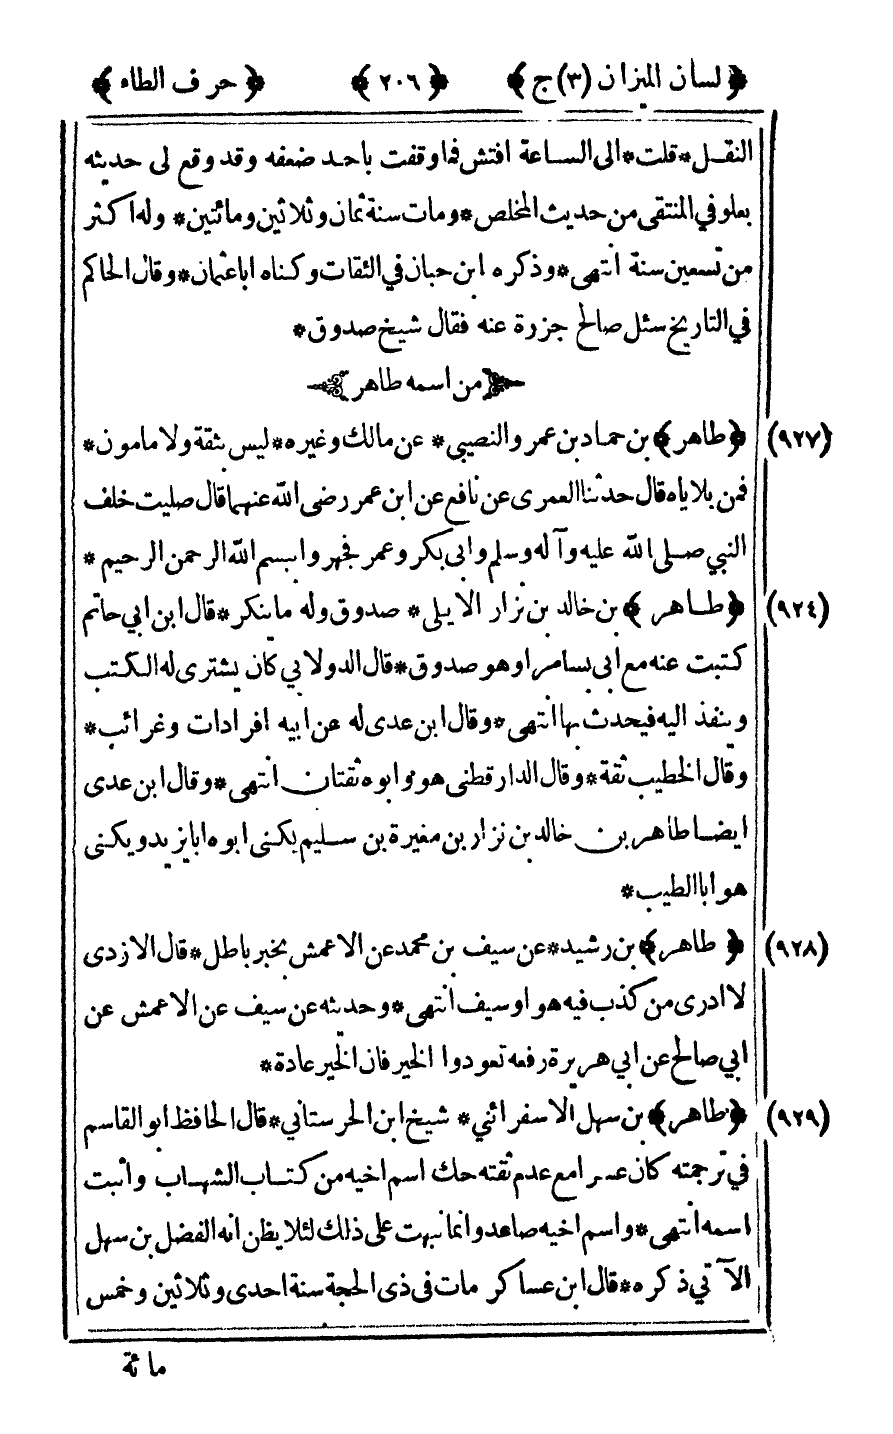 ﴿ لسان الميزان (٣) ج ﴾ ﴿ ٢٠٦ ﴾ ﴿ حرف الطاء ﴾
النقـل * قلت * الى الساعة افتش فما وقفت باحد ضعفه وقد وقع لى حديثه
بعلو في المنتقى من حديث المخلص * ومات سنة ثمان وثلاثين ومائتين * وله اكثر
من تسعين سنة انتهى * وذكره ابن حبان في الثقات وكناه اباعثمان * وقال الحاكم
في التاريخ سئل صالح جزرة عنه فقال شيخ صدوق *
من اسمه طاهر
(٩٢٧) ﴿ طاهر ﴾ بن حماد بن عمرو النصيبي * عن مالك وغيره * ليس بثقة ولا مامون *
فمن بلاياه قال حدثنا العمرى عن نافع عن ابن عمر رضى الله عنهما قال صليت خلف
النبي صلى الله عليه وآله وسلم وابى بكر وعمر فجهروا ببسم الله الرحمن الرحيم *
(٩٢٤) ﴿ طاهر ﴾ بن خالد بن نزار الايلى * صدوق وله ما ينكر * قال ابن ابي حاتم
كتبت عنه مع ابى بسامرا وهو صدوق * قال الدولابي كان يشترى له الكتب
وينفذ اليه فيحدث بها انتهى * وقال ابن عدى له عن ابيه افرادات وغرائب *
وقال الخطيب ثقة * وقال الدارقطنى هو وابوه ثقتان انتهى * وقال ابن عدى
ايضا طاهر بن خالد بن نزار بن مغيرة بن سليم يكنى ابوه ابايزيد ويكنى
هو ابا الطيب *
(٩٢٨) ﴿ طاهر ﴾ بن رشيد * عن سيف بن محمد عن الاعمش بخبر باطل * قال الازدى
لا ادرى من كذب فيه هو اوسيف انتهى * وحديثه عن سيف عن الاعمش عن
ابي صالح عن ابي هريرة رفعه تعودوا الخير فان الخير عادة *
(٩٢٩) ﴿ طاهر ﴾ بن سهل الاسفرائني * شيخ ابن الحرستاني * قال الحافظ ابو القاسم
في ترجمته كان عسرا مع عدم ثقته حك اسم اخيه من كتاب الشهاب واثبت
اسمه انتهى * واسم اخيه صاعد وانما نبهت على ذلك لئلا يظن انه الفضل بن سهل
الآتي ذكره * قال ابن عساكر مات فى ذى الحجة سنة احدى وثلاثين وخمس
مائة